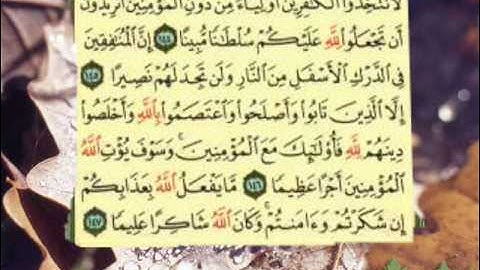 لَا تَتَّخِذُوا۟ ٱلْكَٰفِرِينَ أَوْلِيَآءَ مِن دُونِ ٱلْمُؤْمِنِينَ أَتُرِيدُونَ
أَن تَجْعَلُوا۟ لِلَّهِ عَلَيْكُمْ سُلْطَٰنًا مُّبِينًا ١٤٤ إِنَّ ٱلْمُنَٰفِقِينَ
فِى ٱلدَّرْكِ ٱلْأَسْفَلِ مِنَ ٱلنَّارِ وَلَن تَجِدَ لَهُمْ نَصِيرًا ١٤٥
إِلَّا ٱلَّذِينَ تَابُوا۟ وَأَصْلَحُوا۟ وَٱعْتَصَمُوا۟ بِٱللَّهِ وَأَخْلَصُوا۟
دِينَهُمْ لِلَّهِ فَأُو۟لَٰٓئِكَ مَعَ ٱلْمُؤْمِنِينَ ۖ وَسَوْفَ يُؤْتِ ٱللَّهُ
ٱلْمُؤْمِنِينَ أَجْرًا عَظِيمًا ١٤٦ مَّا يَفْعَلُ ٱللَّهُ بِعَذَابِكُمْ
إِن شَكَرْتُمْ وَءَامَنتُمْ ۚ وَكَانَ ٱللَّهُ شَاكِرًا عَلِيمًا ١٤٧